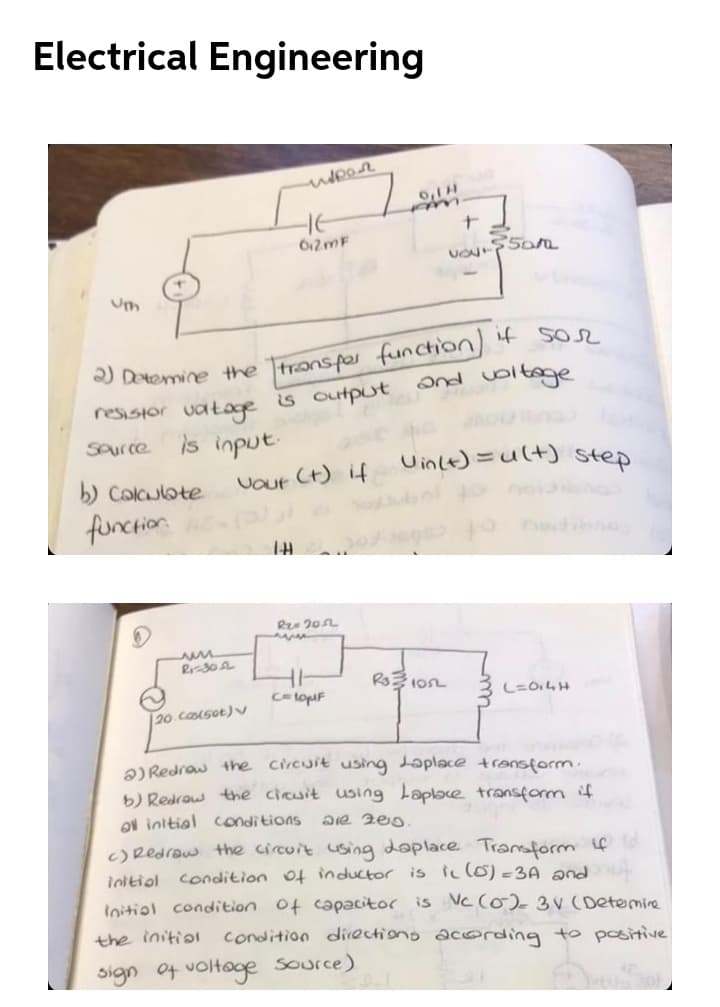 Electrical Engineering
0,1H
0,2mF
+
50Ω
+
-
a) Determine the transfer function if 50Ω
resistor voltage is output and voltage
source is input.
b) Calculate Vout (t) if Vin(t) = u(t) step
function.
1H
R2=20Ω
R1=30Ω
C=10μF
R3 10Ω
L=0,4H
20.cos(50t)V
a) Redraw the circuit using Laplace transform.
b) Redraw the circuit using Laplace transform if
all initial conditions are zero.
c) Redraw the circuit using Laplace Transform if
initial condition of inductor is iL(0)=3A and
initial condition of capacitor is Vc(0)=3V (Determine
the initial condition directions according to positive
sign of voltage source)